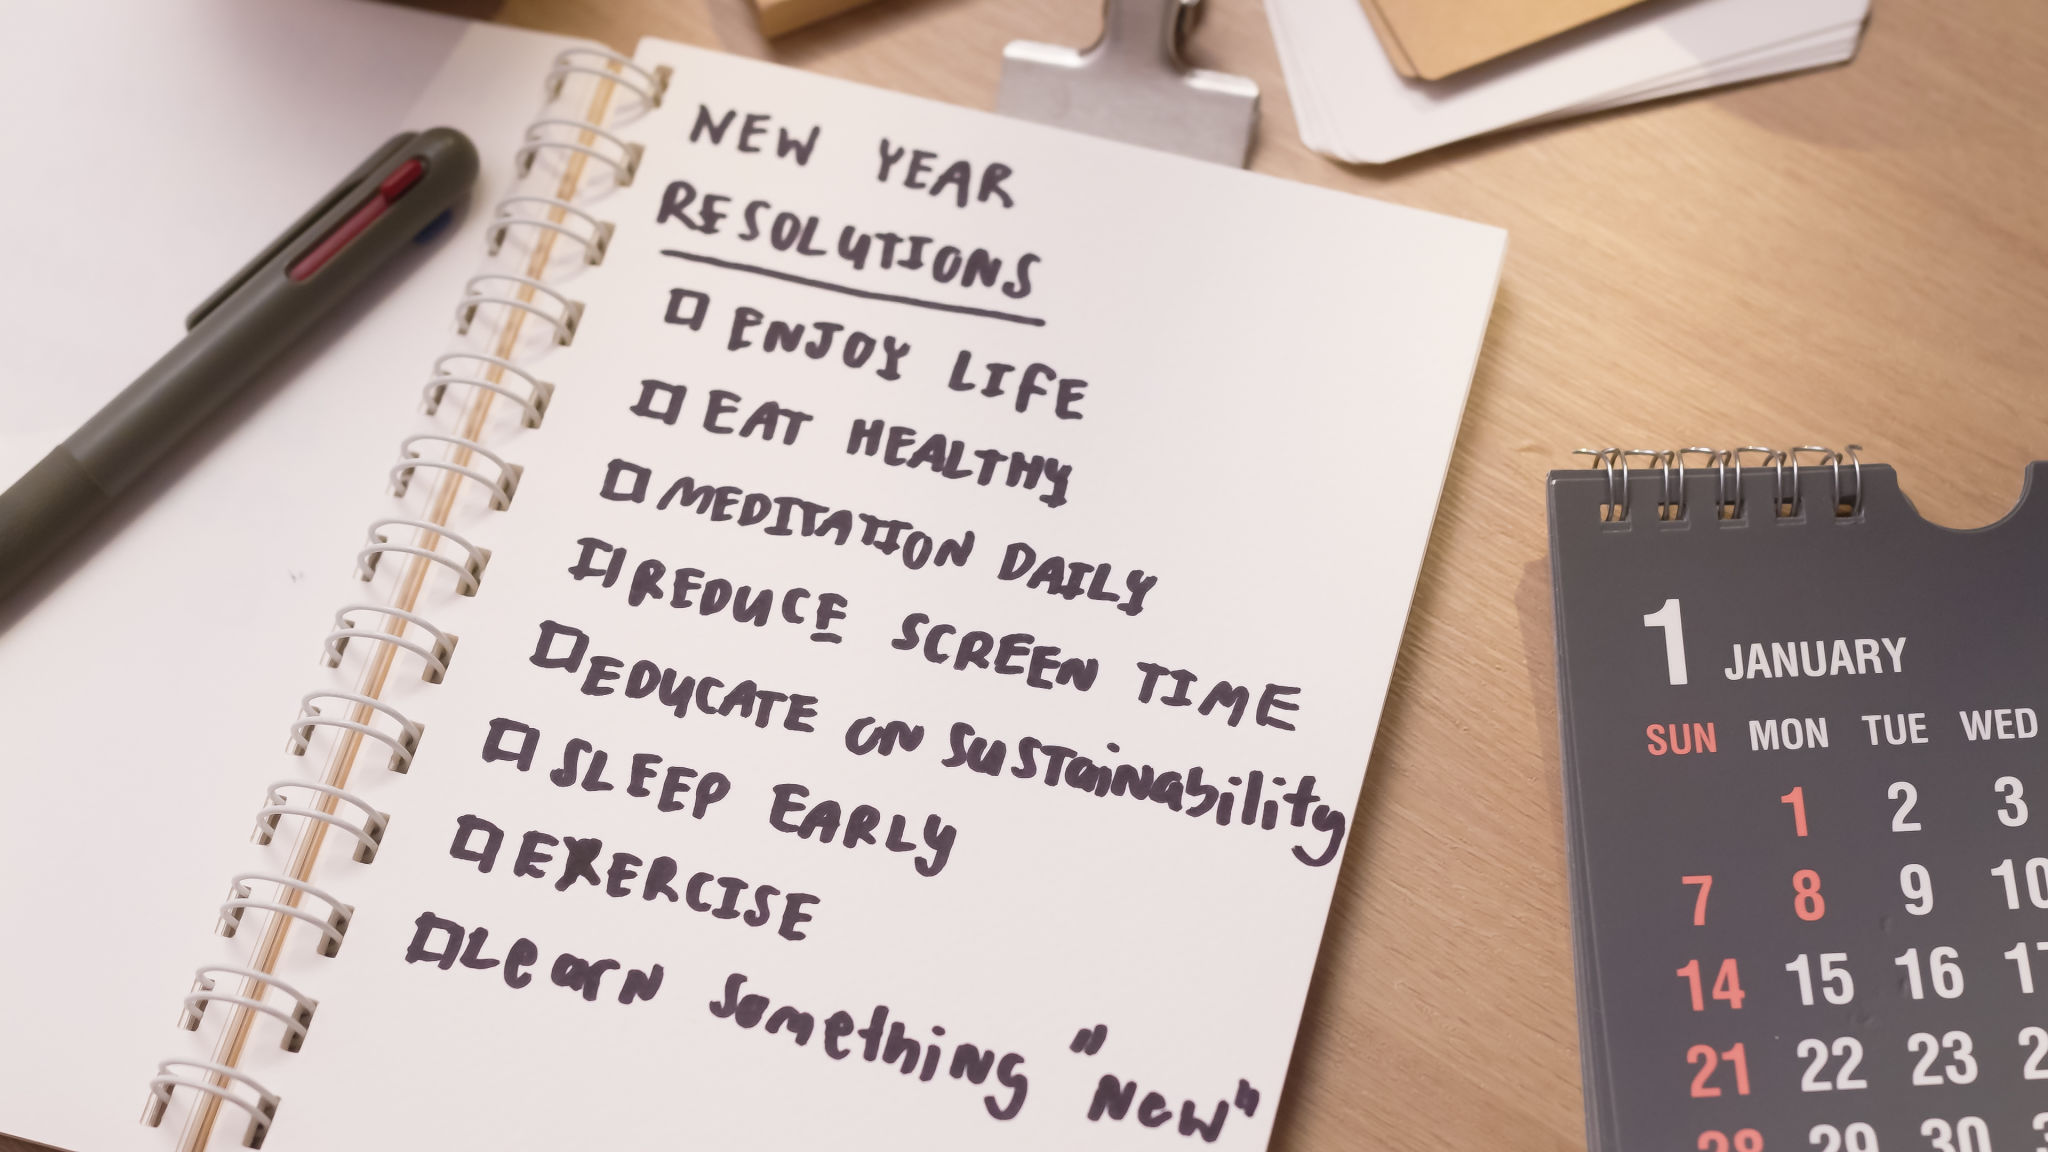 NEW YEAR
RESOLUTIONS
ENJOY LIFE
EAT HEALTHY
MEDITATION DAILY
REDUCE SCREEN TIME
EDUCATE ON SUSTAINABILITY
SLEEP EARLY
EXERCISE
Learn something "New"
1 JANUARY
SUN MON TUE WED
1 2 3
7 8 9 10
14 15 16
21 22 23
28 29 30